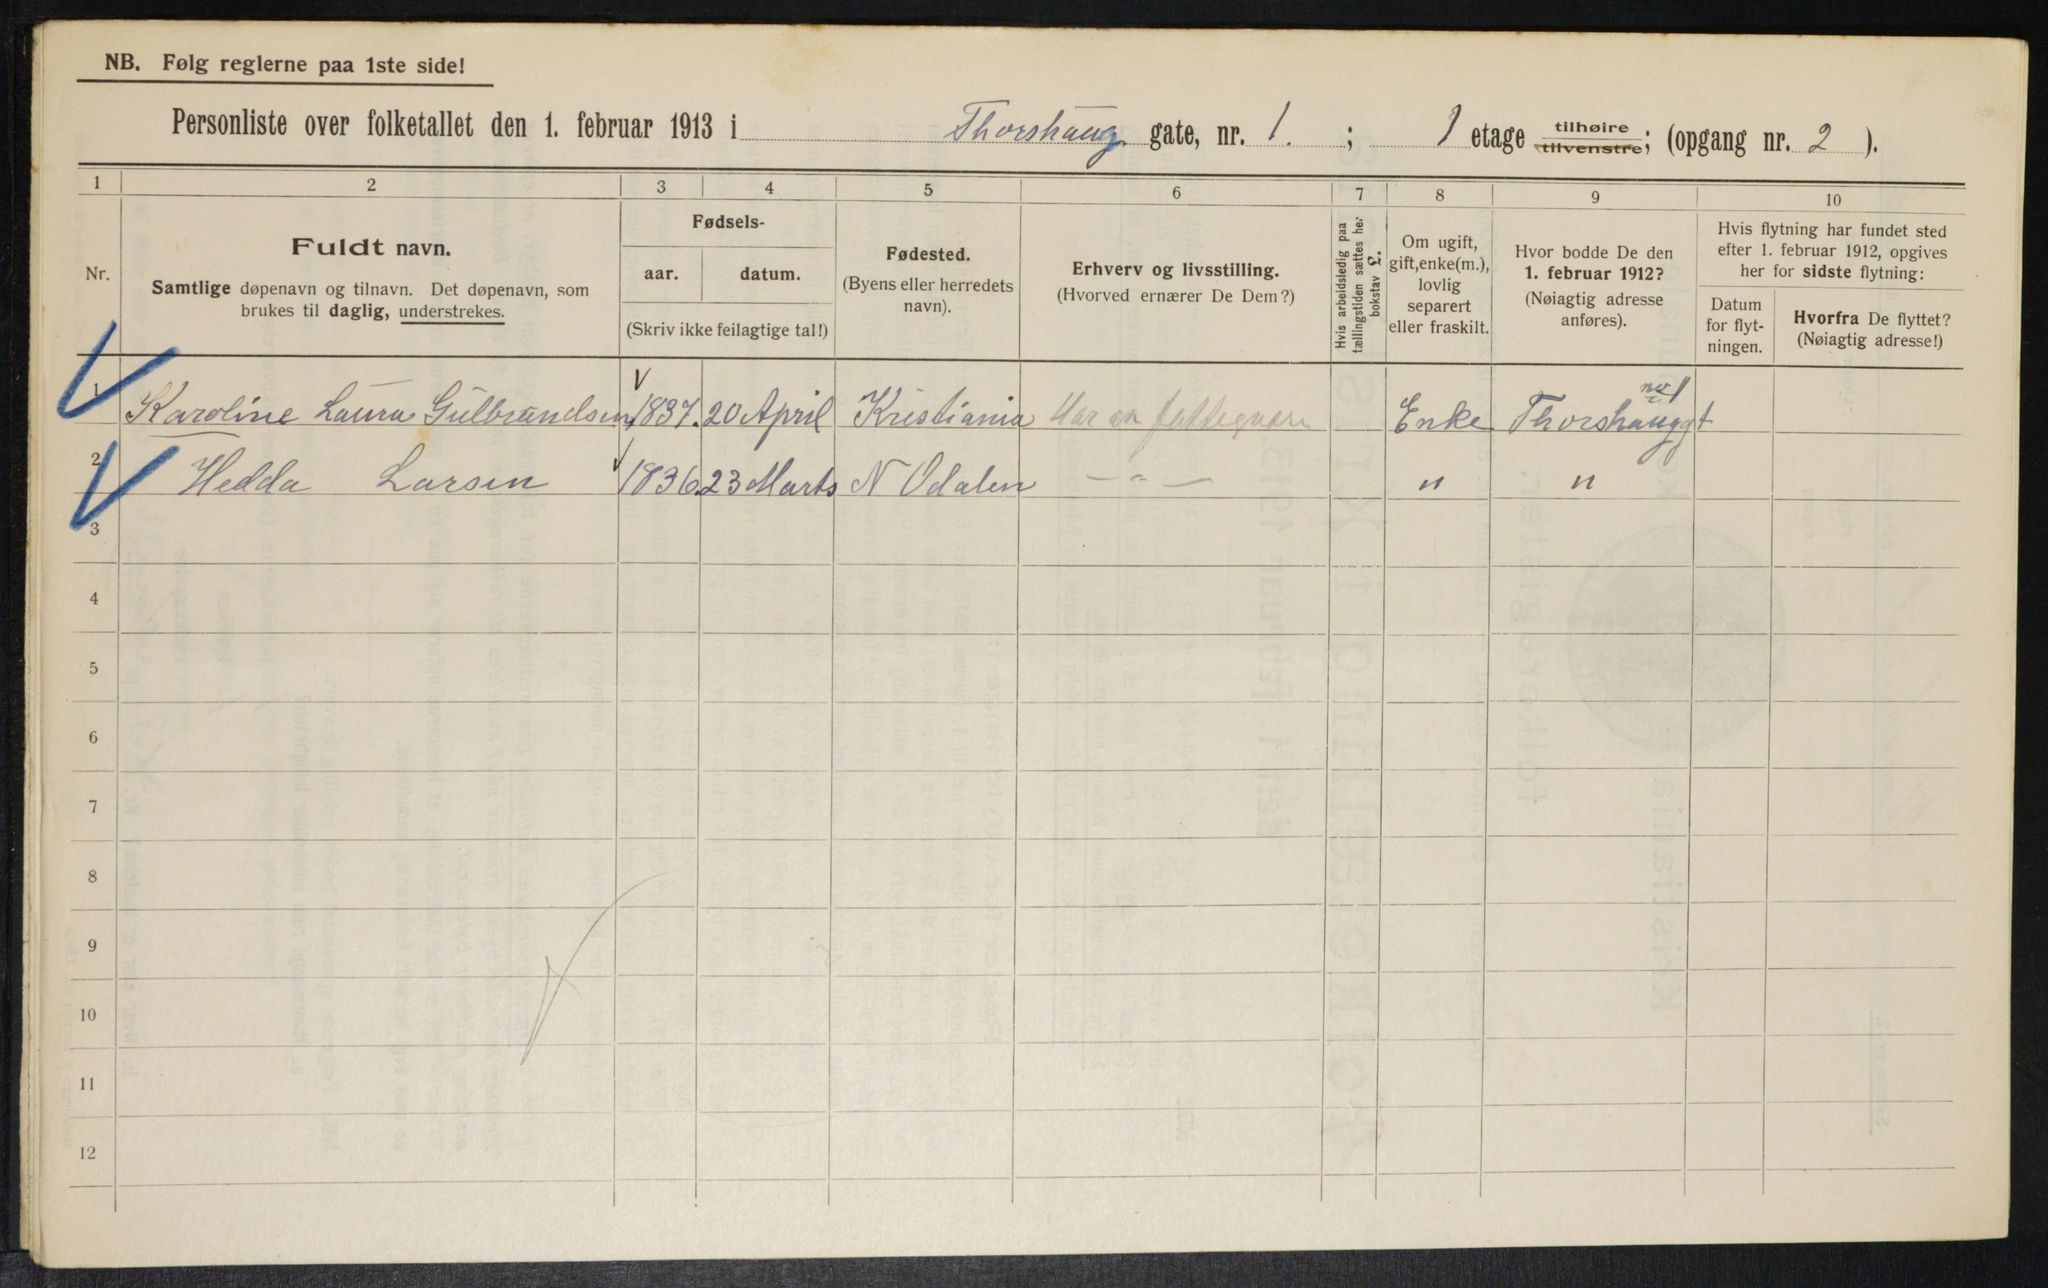 NB. Følg reglerne paa 1ste side!
Personliste over folketallet den 1. februar 1913 i Thorshaug gate, nr. 1. ; 1 etage tilhøire tilvenstre; (opgang nr. 2 ).
1 2 3 4 5 6 7 8 9 10
Nr.
Fuldt navn.
Samtlige døpenavn og tilnavn. Det døpenavn, som
brukes til daglig, understrekes.
Fødsels-
aar. datum.
(Skriv ikke feilagtige tal!)
Fødested.
(Byens eller herredets
navn).
Erhverv og livsstilling.
(Hvorved ernærer De Dem?)
Hvis arbeidsledig paa
tællingstiden sættes her
bokstav L.
Om ugift,
gift, enke(m.),
lovlig
separert
eller fraskilt.
Hvor bodde De den
1. februar 1912?
(Nøiagtig adresse
anføres).
Hvis flytning har fundet sted
efter 1. februar 1912, opgives
her for sidste flytning:
Datum
for flyt-
ningen.
Hvorfra De flyttet?
(Nøiagtig adresse!)
1 Karoline Laura Gulbrandsen 1837. 20 April Kristiania Har en Enke Thorshauggt no 1
2 Hedda Larsen 1836. 23 Marts N Odalen — " — " "
3
4
5
6
7
8
9
10
11
12